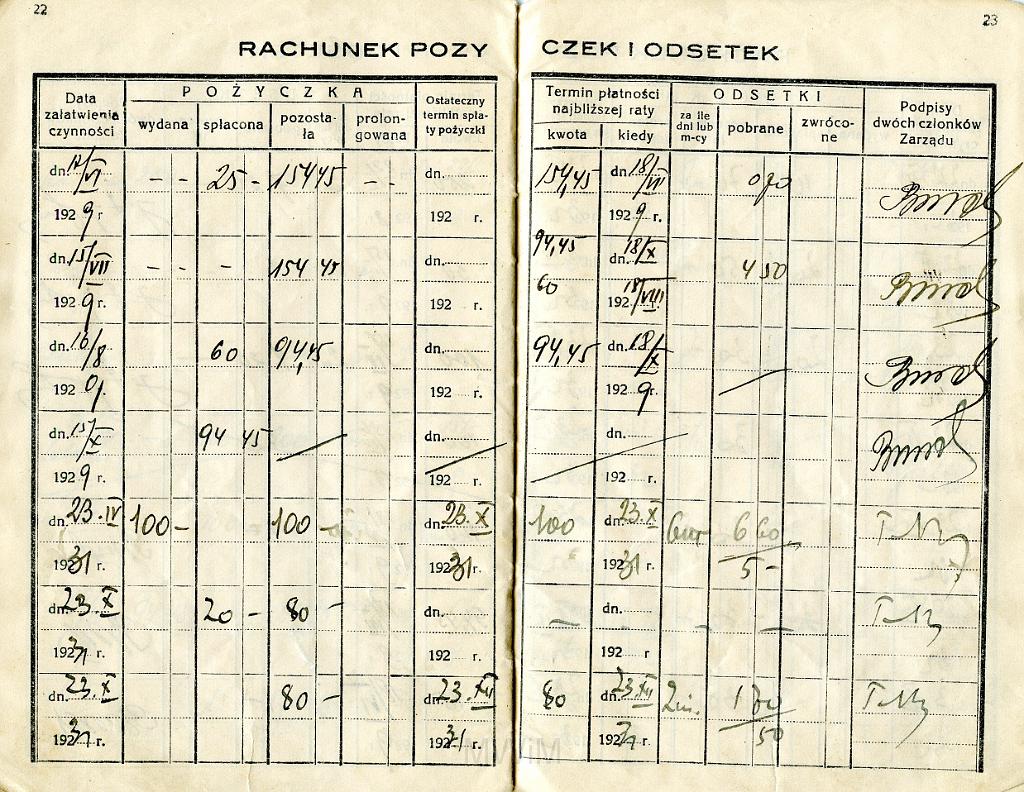 22
23
RACHUNEK POŻYCZEK I ODSETEK
Data załatwienia czynności
POŻYCZKA
wydana
spłacona
pozostała
prolongowana
Ostateczny termin spłaty pożyczki
Termin płatności najbliższej raty
kwota
kiedy
ODSETKI
za ile dni lub m-cy
pobrane
zwrócone
Podpisy dwóch członków Zarządu
dn. /VI - - 25 - 154 45 - - dn. 154,45 dn. 18/VII 0 70
1929 r. 192 r. 1929 r.
dn. 15/VII - - - 154 45 dn. 94,45 dn. 18/X 4 50
1929 r. 192 r. 60 192 18/VIII
dn. 16/8 60 94,45 dn. 94,45 dn. 18/X
1929. 192 r. 1929 r.
dn. 15/X 94 45 dn. dn.
1929 r. 192 r. 192 r.
dn. 23.IV 100 - 100 - dn. 23.X 100 dn. 23.X 6 6 60
19231 r. 19231 r. 19231 r. 5 -
dn. 23.X 20 - 80 - dn. - dn. - -
19231 r. 192 r. 192 r.
dn. 23.X 80 - dn. 23.XII 80 dn. 23.XII 1
19231 r. 19231 r. 19231 r. 50